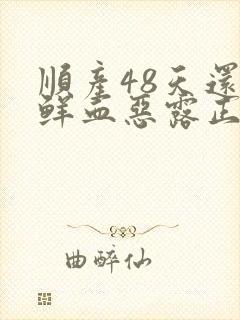 順產48天還
鮮血惡露正
曲醉仙